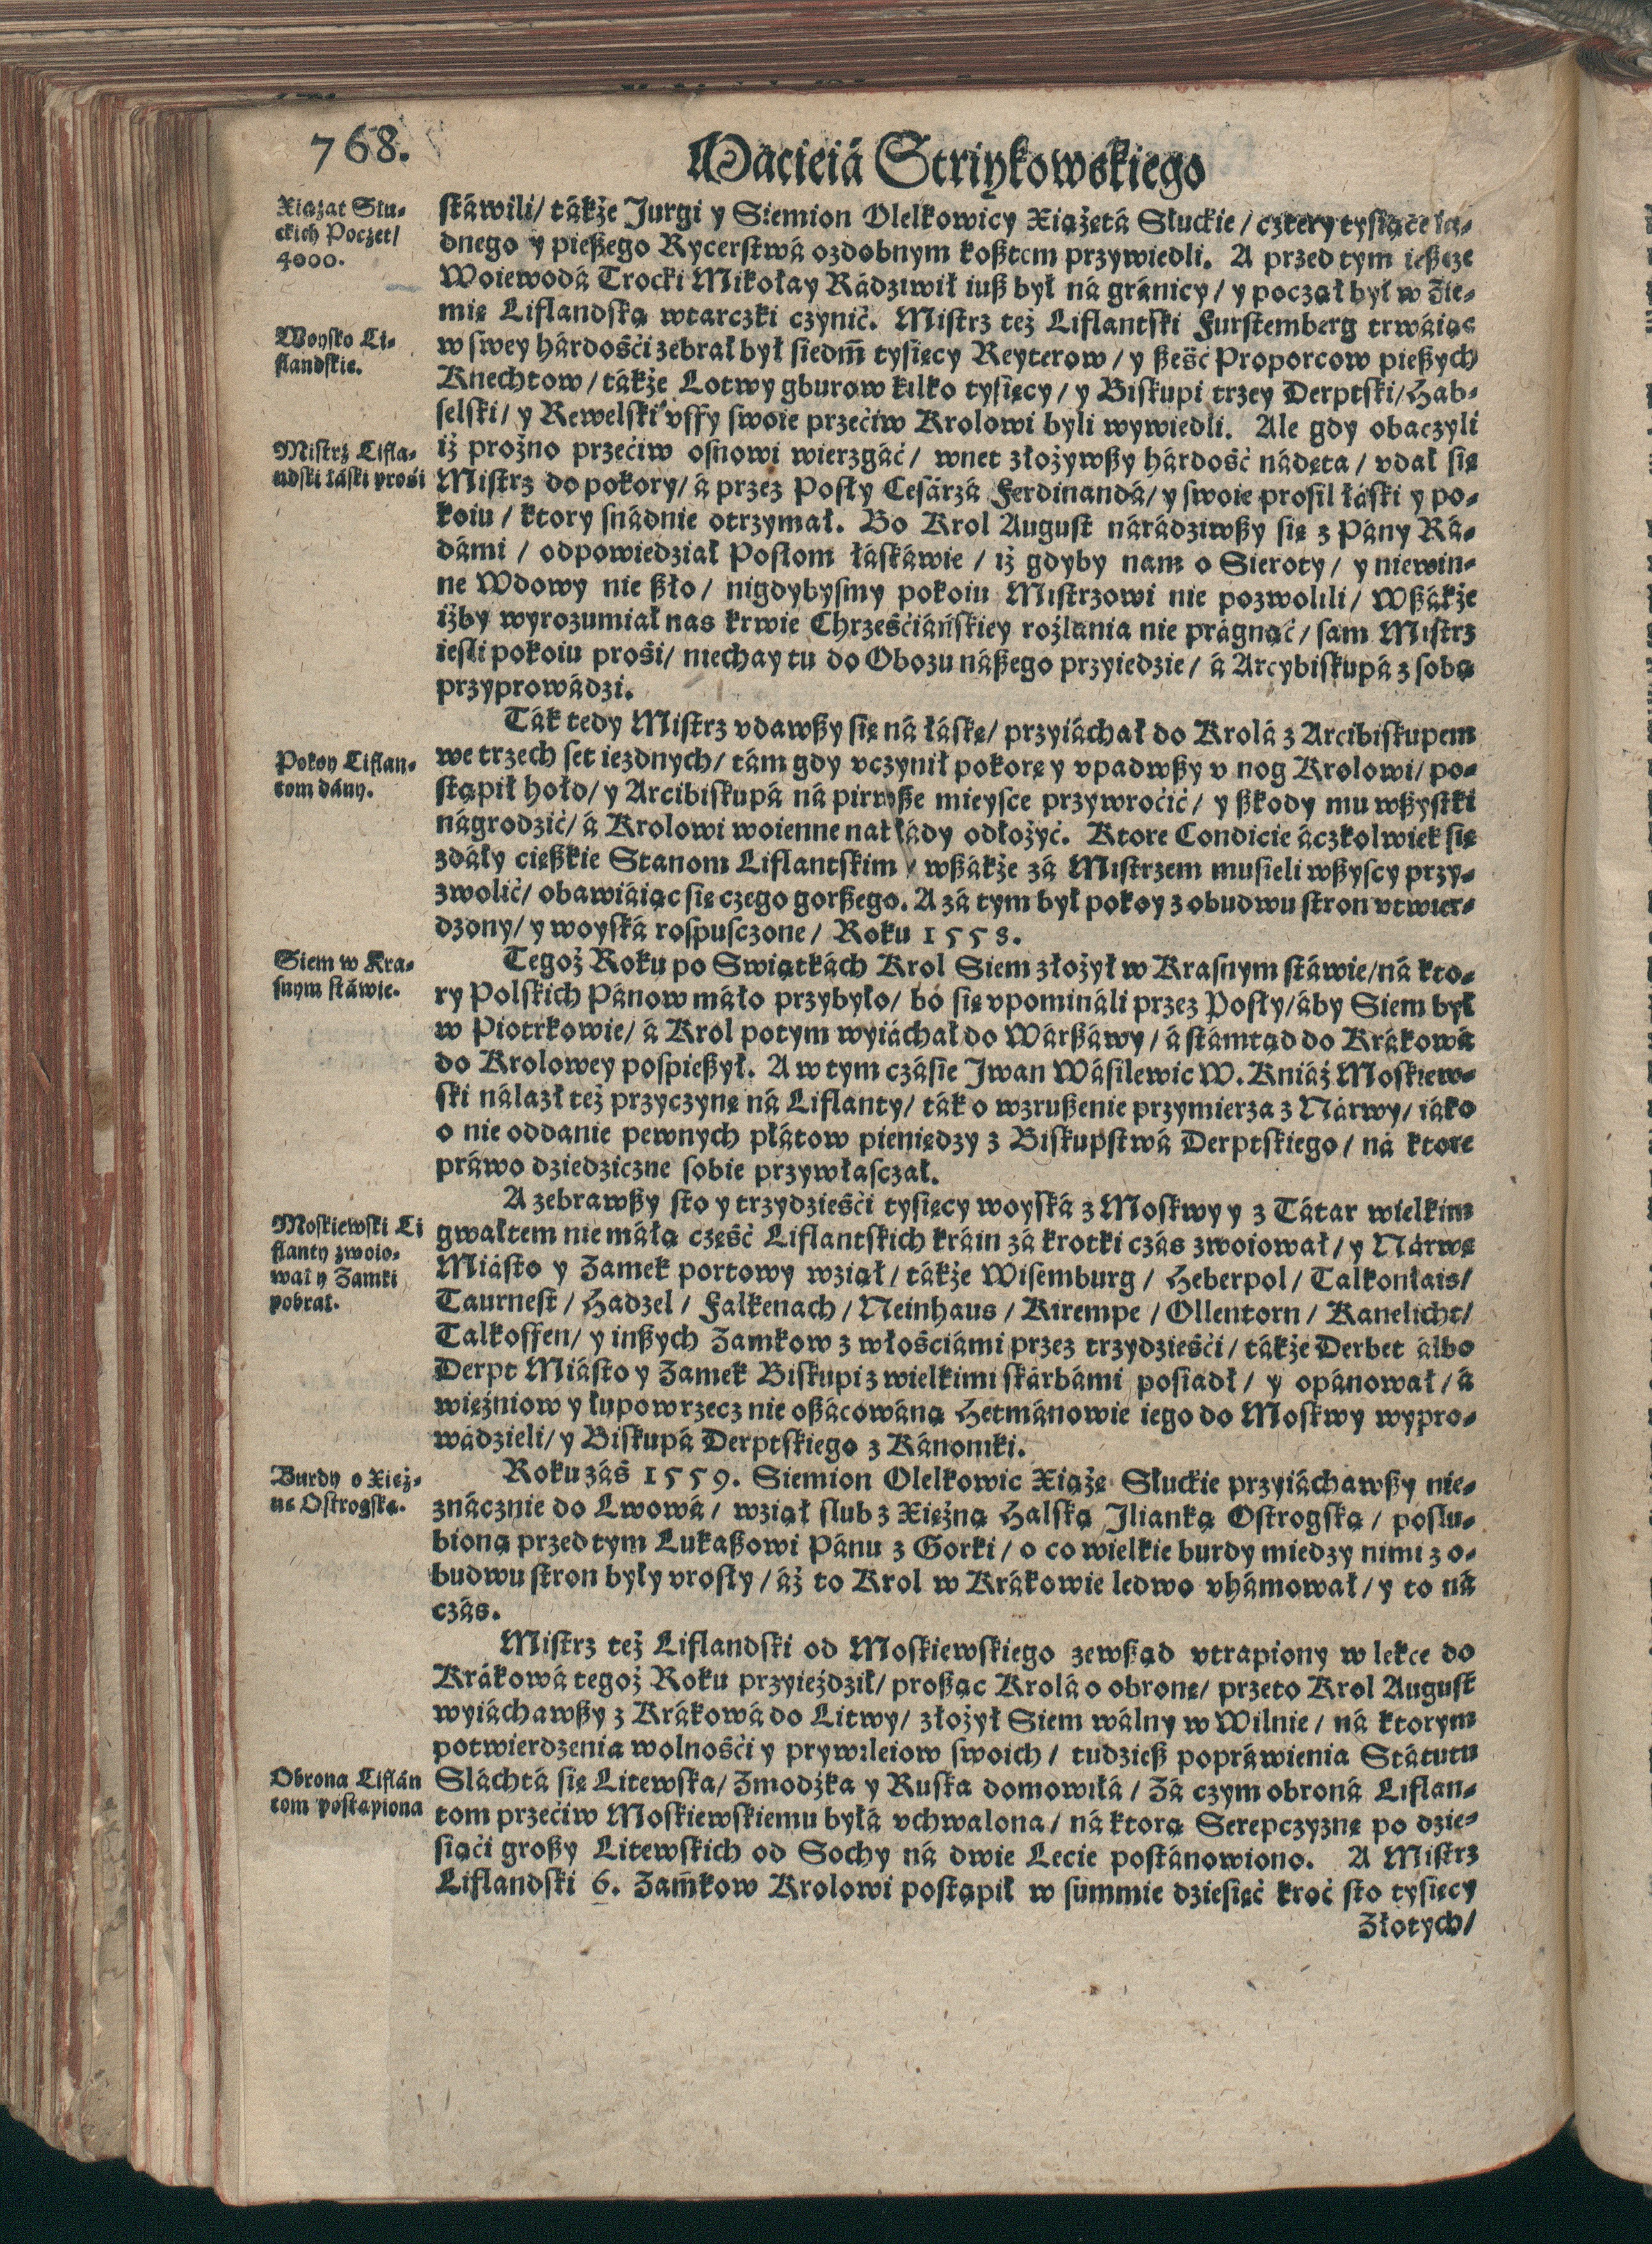 768.
Macieiá Striykowskiego
Xiążat Słu-
ckich Poczet/
4000.
stáwili/ tákże Jurgi y Siemion Olelkowicy Xiążętá Słuckie/ cztery tysiące ia-
dnego y pießego Rycerstwá ozdobnym koßtem przywiedli. A przed tym ießcze
Woiewodá Trocki Mikołay Rádziwił iuß był ná gránicy/ y począł był w Zie-
mię Liflandską wtarczki czynić. Mistrz też Liflantski Furstemberg trwáiąc
Woysko Li-
flandskie.
w swey hárdośći zebrał był siedm̃ tysięcy Reyterow/ y ßeść Proporcow pießych
Knechtow/ tákże Lotwy gburow kilko tysięcy/ y Biskupi trzey Derptski/ Hab-
selski/ y Rewelski vffy swoie przećiw Krolowi byli wywiedli. Ale gdy obaczyli
Mistrz Lifla-
ndski łáski prośi
iż prożno przećiw osnowi wierzgáć/ wnet złożywßy hárdość nádętą/ vdał się
Mistrz do pokory/ á przez Posły Cesárzá Ferdinandá/ y swoie prosił łáski y po-
koiu/ ktory snádnie otrzymał. Bo Krol August nárádziwßy się z Pány Rá-
dámi/ odpowiedział Posłom łáskáwie/ iż gdyby nam o Sieroty/ y niewin-
ne Wdowy nie ßło/ nigdybysmy pokoiu Mistrzowi nie pozwolili/ Wßákże
iżby wyrozumiał nas krwie Chrześćiáńskiey rozlania nie prágnąć/ sam Mistrz
iesli pokoiu prośi/ niechay tu do Obozu náßego przyiedzie/ á Arcybiskupá z sobą
przyprowádzi.
Ták tedy Mistrz vdawßy się ná łáskę/ przyiáchał do Krolá z Arcibiskupem
Pokoy Liflan-
tom dány.
we trzech set iezdnych/ tám gdy vczynił pokorę y vpadwßy v nog Krolowi/ po-
stąpił hołd/ y Arcibiskupá ná pirwße mieysce przywroćić/ y ßkody mu wßystki
nágrodzić/ á Krolowi woienne nakłády odłożyć. Ktore Condicie áczkolwiek się
zdáły cięßkie Stanom Liflantskim/ wßákże zá Mistrzem musieli wßyscy przy-
zwolić/ obawiáiąc się czego gorßego. A zá tym był pokoy z obudwu stron vtwier-
dzony/ y woyská rospusczone/ Roku 1558.
Siem w Kra-
snym stáwie.
Tegoż Roku po Swiątkách Krol Siem złożył w Krasnym stáwie/ ná kto-
ry Polskich Pánow máło przybyło/ bo się vpomináli przez Posły/ áby Siem był
w Piotrkowie/ á Krol potym wyiáchał do Wárßáwy/ á stámtąd do Krákowá
do Krolowey pospießył. A w tym czásie Jwan Wásilewic W. Kniáź Moskiew-
ski nálazł też przyczynę ná Liflanty/ ták o wzrußenie przymierza z Nárwy/ iáko
o nie oddanie pewnych płátow pieniędzy z Biskupstwá Derptskiego/ ná ktore
práwo dziedziczne sobie przywłasczał.
A zebrawßy sto y trzydzieśći tysięcy woyská z Moskwy y z Tátar wielkim
Moskiewski Li
flanty zwoio-
wał y Zamki
pobrał.
gwałtem nie máłą część Liflantskich kráin zá krotki czás zwoiował/ y Nárwę
Miásto y Zamek portowy wziął/ tákże Wisemburg/ Heberpol/ Talkonłais/
Taurnest/ Hadzel/ Falkenach/ Neinhaus/ Kirempe/ Ollentorn/ Kanelicht/
Talkoffen/ y inßych Zamkow z włośćiámi przez trzydzieśći/ tákże Derbet álbo
Derpt Miásto y Zamek Biskupi z wielkimi skárbámi posiadł/ y opánował/ á
więźniow y łupow rzecz nie oßácowáną Hetmánowie iego do Moskwy wypro-
wádzieli/ y Biskupá Derptskiego z Kánoniki.
Burdy o Xięż-
nę Ostrogską.
Roku záś 1559. Siemion Olelkowic Xiążę Słuckie przyiáchawßy nie-
znácznie do Lwowá/ wziął slub z Xiężną Halską Jlianką Ostrogską/ poslu-
bioną przed tym Lukaßowi Pánu z Gorki/ o co wielkie burdy miedzy nimi z o-
budwu stron były vrosły/ áż to Krol w Krákowie ledwo vhámował/ y to ná
czás.
Mistrz też Liflandski od Moskiewskiego zewßąd vtrapiony w lekce do
Krákowá tegoż Roku przyieździł/ proßąc Krolá o obronę/ przeto Krol August
wyiáchawßy z Krákowá do Litwy/ złożył Siem wálny w Wilnie/ ná ktorym
potwierdzenia wolnośći y prywileiow swoich/ tudzieß popráwienia Státutu
Obrona Liflán
tom postąpiona
Sláchtá się Litewska/ Zmodźka y Ruska domowiłá/ Zá czym obroná Liflan-
tom przećiw Moskiewskiemu byłá vchwalona/ ná ktorą Serepczyznę po dzie-
siąći großy Litewskich od Sochy ná dwie Lecie postánowiono. A Mistrz
Liflandski 6. Zam̃kow Krolowi postąpił w summie dziesięć kroć sto tysięcy
Złotych/